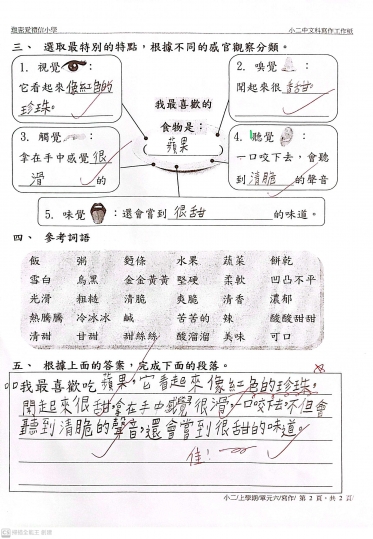 小二中文科寫作工作紙
三、 選取最特別的特點，根據不同的感官觀察分類。
1. 視覺 ：
它看起來像紅色的
珍珠。
2. 嗅覺 ：
聞起來很香甜
我最喜歡的
食物是：
蘋果
3. 觸覺 ：
拿在手中感覺很
滑 的
4. 聽覺 ：
一口咬下去，會聽
到清脆 的聲音
5. 味覺 ：還會嘗到 很甜 的味道。
四、 參考詞語
飯 粥 麪條 水果 蔬菜 餅乾
雪白 烏黑 金金黃黃 堅硬 柔軟 凹凸不平
光滑 粗糙 清脆 爽脆 清香 濃郁
熱騰騰 冷冰冰 鹹 苦苦的 辣 酸酸甜甜
清甜 甘甜 甜絲絲 酸溜溜 美味 可口
五、 根據上面的答案，完成下面的段落。
我最喜歡吃 蘋果，它看起來像紅色的珍珠。
聞起來很甜，拿在手中感覺很滑，一口咬去，不但會
聽到清脆的聲音，還會嘗到很甜的味道。
佳！
小二/上學期/單元六/寫作/ 第 2 頁，共 2 頁